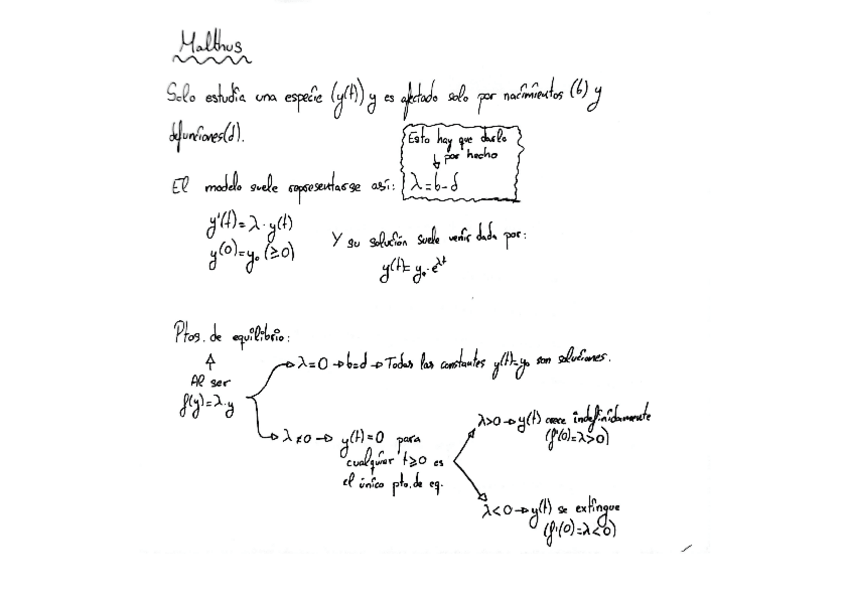 Malthus
Solo estudia una especie (y(t)) y es afectado solo por nacimientos (b) y
defunciones(d).
Esto hay que darlo
por hecho
El modelo suele representarse así: λ=b-d
y'(t)=λ·y(t)
y(0)=y₀ (≥0)
Y su solución suele venir dada por:
y(t)=y₀·e^λt
Ptos. de equilibrio:
Al ser
f(y)=λ·y
λ=0 → b=d → Todas las constantes y(t)=y₀ son soluciones.
λ≠0 → y(t)=0 para
cualquier t≥0 es
el único pto. de eq.
λ>0 → y(t) crece indefinidamente
(f'(0)=λ>0)
λ<0 → y(t) se extingue
(f'(0)=λ<0)